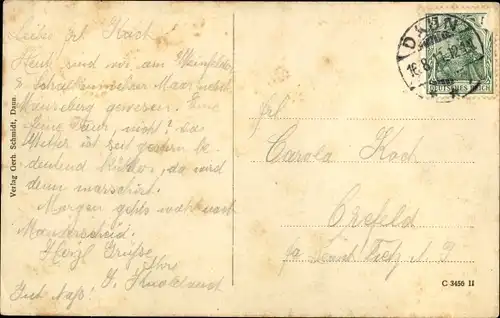 Heut sind wir am Weinfelder
u. Schalkenmehrer Maar nebst
Mäuseberg gewesen. Eine
feine Tour, nicht? Das
Wetter ist seit gestern be-
deutend kühler, da wird
dann marschiert.
Morgen gehts wohl nach
Manderscheid.
Herzl. Grüße
Ihre
Gut Naß!
Verlag Gerh. Schmidt, Daun
DAUN
16.8.
DEUTSCHES REICH
Frl.
Carola Koch
Crefeld
C 3456 II